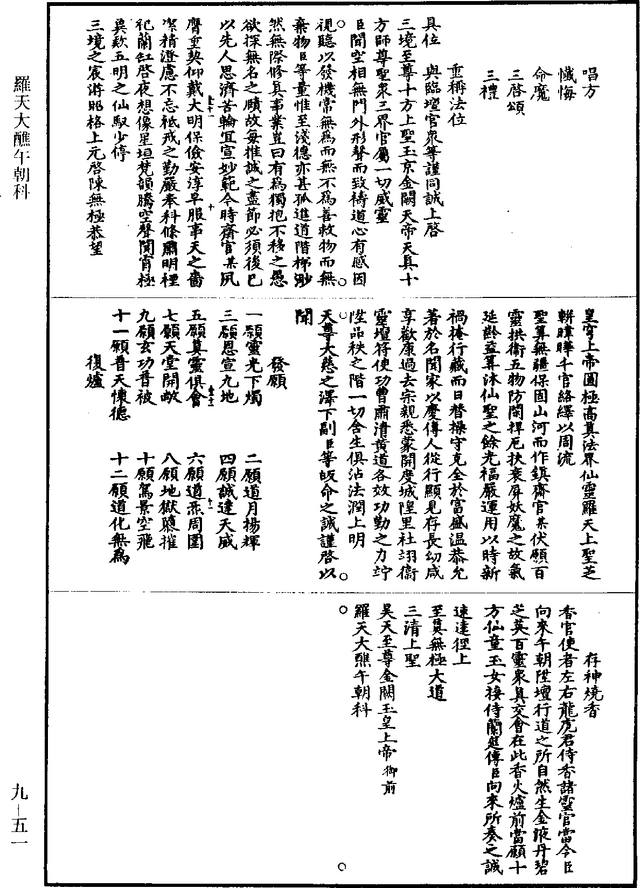 羅天大醮午朝科
唱方
懺悔
命魔
三啓頌
三禮
重稱法位
具位　與臨壇官衆等謹同誠上啓
三境至尊十方上聖玉京金闕天帝天真十
方師尊聖衆三界官屬一切威靈
臣聞空相無門外形聲而致禱道心有感因
視聽以發機常無爲而無不爲善救物而無
棄物臣等量惟至淺德亦甚孤進道階梯渺
然無際修真事業豈曰有爲獨抱不移之愚
欲探無名之賾故每推誠之盡節必須後己
以先人思濟苦輪宜宣妙範今時齋官某夙
膺重契仰戴大明保儉安淳早服事天之嗇
潔精澄慮不忘祗戒之勤嚴奉科條肅明禋
祀蘭缸啓夜想像星垣梵韻騰空聲聞霄極
冀欵五明之仙馭少停
三境之宸斿昭格上元啓陳無極恭望
皇穹上帝圓極高真法界仙靈羅天上聖芝
軿暐曄千官絡繹以周流
聖算無疆保固山河而作鎮齋官某伏願百
靈拱衞五物防閑捍厄扶衰屏妖魔之故氣
延齡益算沐仙聖之餘光福嚴運用以時新
禍掩行藏而日替操守克全於富盛溫恭允
著於名聞家以慶傳人從行顯見存長幼咸
享歡康過去宗親悉蒙開度城隍里社翊衞
靈壇符使功曹肅清黄道各效功勤之力竚
陞品秩之階一切含生俱沾法潤上明
天尊大慈之澤下副臣等皈命之誠謹啓以
聞
發願
一願靈光下燭　二願道月揚輝
三願恩宣九地　四願誠達天威
五願真靈俱會　六願道炁周圓
七願天堂開敞　八願地獄隳摧
九願玄功普被　十願駕景空飛
十一願普天懷德　十二願道化無爲
復爐
存神燒香
香官使者左右龍虎君侍香諸靈官當令臣
向來午朝陞壇行道之所自然生金液丹碧
芝英百靈衆真交會在此香火爐前當願十
方仙童玉女接侍蘭煙傳臣向來所奏之誠
速達徑上
至真無極大道
三清上聖
昊天至尊金闕玉皇上帝御前
羅天大醮午朝科
九—五一